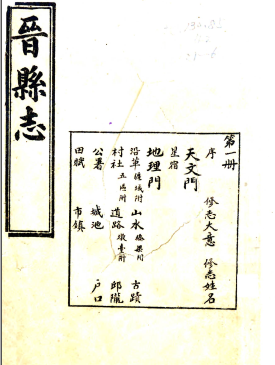 晉縣志
第一册
序 修志大意 修志姓名
天文門
星宿
地理門
沿革 疆域附 山水 橋梁附 古蹟
村社 五區附 道路 墩臺附 邱隴
公署 城池 戶口
田賦 市鎮